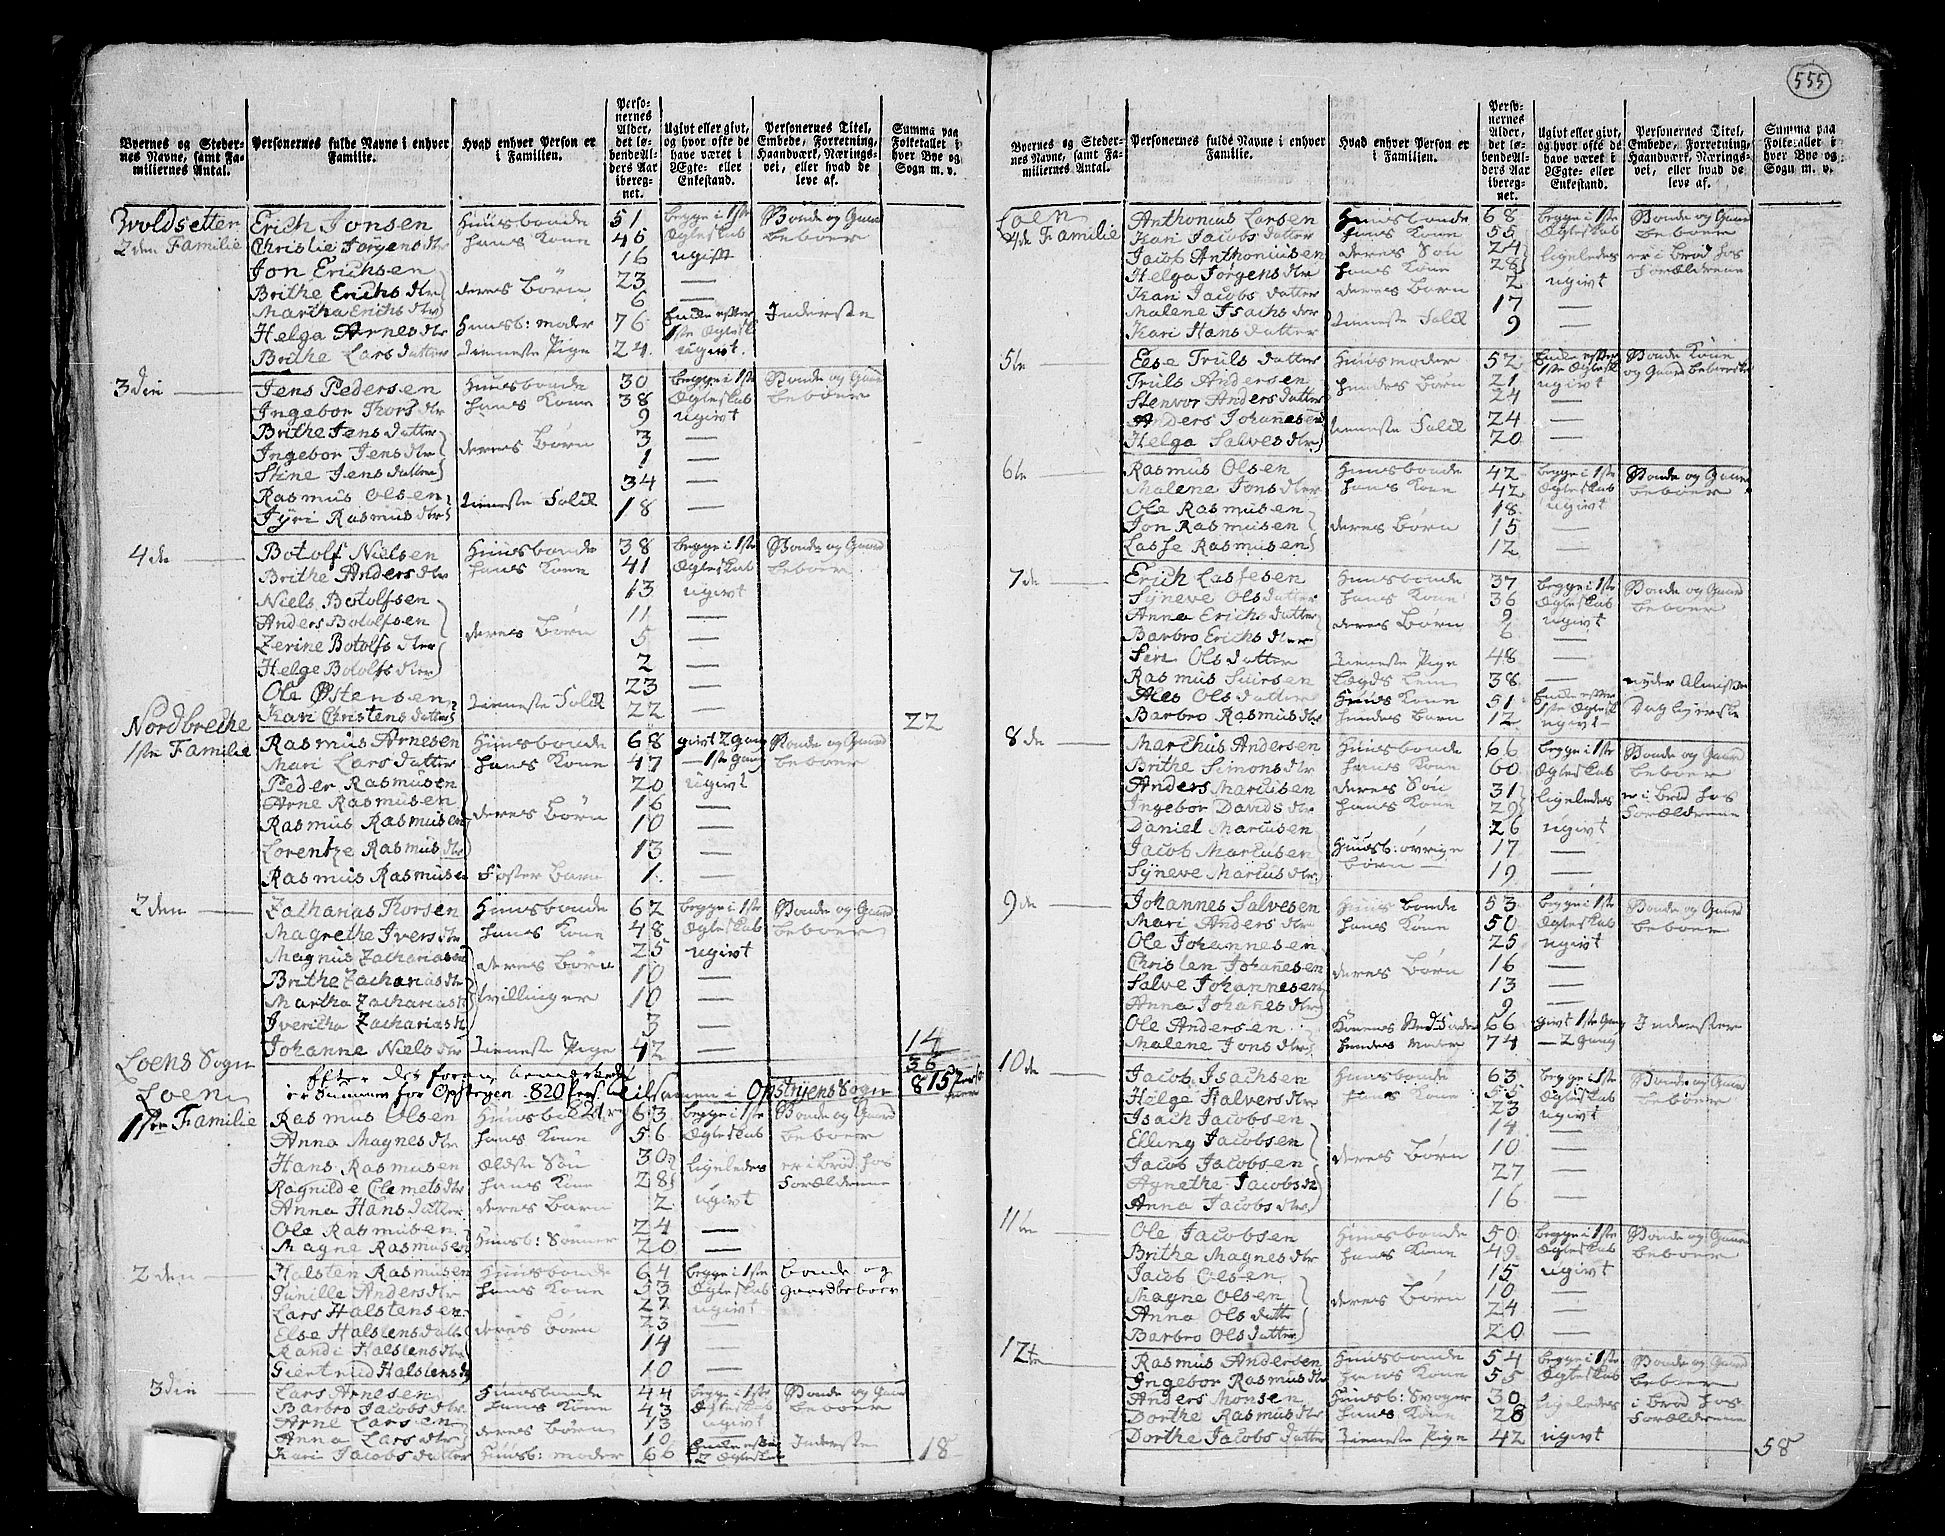 555
Byernes og Steder-
nes Navne, samt Fa-
miliernes Antal.
Personernes fulde Navne i enhver
Familie.
Hvad enhver Person er
i Familien.
Perso-
nernes
Alder,
det lø-
bende Al-
ders Aar
ibereg-
net.
Ugivt eller givt,
og hvor ofte de
have været i
Ægte- eller
Enkestand.
Personernes Titel,
Embede, Forretning,
Haandværk, Nærings-
vei, eller hvad de
leve af.
Summa paa
Folketallet i
hver Bye og
Sogn m. v.
2den Familie Erich Jonsen Huusbonde 51 begge i 1ste Bonde og Gaard
Christie Jørgens dtr hans Kone 45 Ægteskab beboer
Jon Erichsen 16 ugift
Brithe Erichs dtr deres Børn 23 —
Martha Erichs dtr 6 —
Helga Arnes dtr Huusb: moder 76 Enke efter Inderste
1ste Ægtesk
Brithe Lars datter tieneste Pige 24 ugivt
3die — Jens Pedersen Huusbonde 30 begge i 1ste Bonde og Gaard
Ingebor Thors dtr hans Kone 38 Ægteskab beboer
Brithe Jens datter 9 ugivt
Ingebor Jens dtr deres Børn 3 —
Stine Jens datter 1 —
Rasmus Olsen tieneste Folk 34 —
Jyri Rasmus dtr 18 —
4de — Botolf Nielsen Huusbonde 38 begge i 1ste Bonde og Gaard
Brithe Anders dtr hans Kone 41 Ægteskab beboer
Niels Botolfsen 13 ugivt
Anders Botolfsen 11 —
Zerine Botolfs dtr deres Børn 5 —
Helge Botolfs dtr 2 —
Ole Østensen tieneste Folk 23 —
Kari Christens datter 22 — 22
Nordbrethe
1ste Familie Rasmus Arnesen Huusbonde 68 givt 2 gang Bonde og Gaard
Mari Lars datter hans Kone 47 — 1ste gang beboer
Peder Rasmusen 20 ugivt
Arne Rasmusen 16 —
Rasmus Rasmusen deres Børn 10 —
Lorentze Rasmus dtr 13 —
Rasmus Rasmusen Foster barn 1 —
2den — Zacharias Thorsen Huusbonde 62 begge i 1ste Bonde og Gaard
Magrethe Ivers dtr hans Kone 48 Ægteskab beboer
Magnus Zachariasen 25 ugivt
Brithe Zacharias dtr deres Børn 10 —
Martha Zacharias dtr tvillinger 10 —
Ivericha Zacharias dtr 3 —
Johanne Niels dtr tieneste Pige 42 — 14
36
Loens Sogn
Efter det foran bemærkede
er Summen for Opstryen 820 Pers. tilsamen i Opstryens Sogn 815 Perso
ner
Loen
1ste Familie Rasmus Olsen Huusbonde 63 begge i 1ste Bonde og Gaard
Anna Magnes dtr hans Kone 56 Ægteskab beboer
Hans Rasmusen ældste Søn 30 ligeledes er i Brød hos
Ragnilde Clemets dtr hans Kone 28 Forældrene
Anna Hans datter deres Barn 2 ugivt
Ole Rasmusen 24 —
Magne Rasmusen Huusb: Sønner 20 —
2den — Halsten Rasmusen Huusbonde 64 begge i 1ste bonde og
Gunille Anders dtr hans Kone 53 Ægteskab gaardbeboer
Lars Halstensen 27 ugivt
Else Halstens datter deres Børn 23 —
Randi Halstens dtr 14 —
Giertrud Halstens dtr 10 —
3die — Lars Arnesen Huusbonde 44 begge i 1ste Bonde og Gaard
Barbro Jacobs dtr hans Kone 43 Ægteskab beboer
Arne Larsen 13 ugivt
Anna Lars dtr deres Børn 10 —
Kari Jacobs datter Huusb: moder 66 Enke efter Inderste
2 Ægteskab 18
Byernes og Steder-
nes Navne, samt Fa-
miliernes Antal.
Personernes fulde Navne i enhver
Familie.
Hvad enhver Person er
i Familien.
Perso-
nernes
Alder,
det lø-
bende Al-
ders Aar
ibereg-
net.
Ugivt eller givt,
og hvor ofte de
have været i
Ægte- eller
Enkestand.
Personernes Titel,
Embede, Forretning,
Haandværk, Nærings-
vei, eller hvad de
leve af.
Summa paa
Folketallet i
hver Bye og
Sogn m. v.
Loen
4de Familie Anthonius Larsen Huusbonde 68 begge i 1ste Bonde og Gaard
Kari Jacobs datter hans Kone 55 Ægteskab beboer
Jacob Anthoniusen deres Søn 24 ligeledes er i brød hos
Helga Jørgens dtr hans Kone 28 Forældrene
Kari Jacobs datter deres Børn 2 ugivt
Malene Isachs dtr tieneste Folk 17 —
Kari Hans datter 9 —
5te — Else Truls datter Huusmoder 52 Enke efter Bonde Kone
1ste Ægtesk og Gaard beboerske
Truls Andersen hendes Børn 21 ugivt
Stenvor Anders datter 24 —
Anders Johannesen tieneste Folk 24 —
Helga Salves dtr 20 —
6te — Rasmus Olsen Huusbonde 42 begge i 1ste Bonde og Gaard
Malene Jons dtr hans Kone 42 Ægteskab beboer
Ole Rasmusen 18 ugivt
Jon Rasmusen deres Børn 15 —
Lasse Rasmusen 12 —
7de — Erich Lassesen Huusbonde 37 begge i 1ste Bonde og Gaard
Syneve Ols datter hans Kone 36 Ægteskab beboer
Anna Erichs datter deres Børn 9 ugivt
Barbro Erichs dtr 6 —
Siri Ols datter tieneste Pige 48 —
Rasmus Siursen Lægds Lem 38 — nyder Almisse
Ales Ols datter Huus Kone 51 Enke efter Daglejerske
1ste Ægtesk
Barbro Rasmus dtr hendes barn 12 ugivt
8de — Marchus Andersen Huusbonde 66 begge i 1ste Bonde og Gaard
Brithe Simons dtr hans Kone 60 Ægteskab beboer
Anders Marcusen deres Søn 31 ligeledes er i brød hos
Ingebor Davids dtr hans Kone 29 Forældrene
Daniel Marcusen 26 ugivt
Jacob Marcusen Huusb: øvrige 17 —
Syneve Marcus dtr børn 19 —
9de — Johannes Salvesen Huusbonde 53 begge i 1ste Bonde og Gaard
Mari Anders dtr hans Kone 50 Ægteskab beboer
Ole Johannesen 25 ugivt
Christen Johannesen deres Børn 16 —
Salve Johannesen 13 —
Anna Johannes dtr 9 —
Ole Andersen Konens 66 givt 1ste Gang Inderster
Malene Jons dtr hendes Moder 74 — 2 gang
10de — Jacob Isachsen Huusbonde 63 begge i 1ste Bonde og Gaard
Helge Halvers dtr hans Kone 55 Ægteskab beboer
Isach Jacobsen 23 ugivt
Elling Jacobsen 14 —
Jacob Jacobsen deres Børn 10 —
Agnethe Jacobs dtr 27 —
Anna Jacobs dtr 16 —
11te — Ole Jacobsen Huusbonde 50 begge i 1ste Bonde og Gaard
Brithe Magnes dtr hans Kone 49 Ægteskab beboer
Jacob Olsen 15 ugivt
Magne Olsen deres Børn 10 —
Anna Ols datter 24 —
Barbro Ols datter 20 —
12te — Rasmus Andersen Huusbonde 54 begge i 1ste Bonde og Gaard
Ingebor Rasmus dtr hans Kone 55 Ægteskab beboer
Anders Monsen Huusb: Svoger 30 ligeledes i brød hos
Dorthe Rasmus dtr hans Kone 28 Forældrene
Dorthe Jacobs datter tieneste Pige 42 ugivt 58